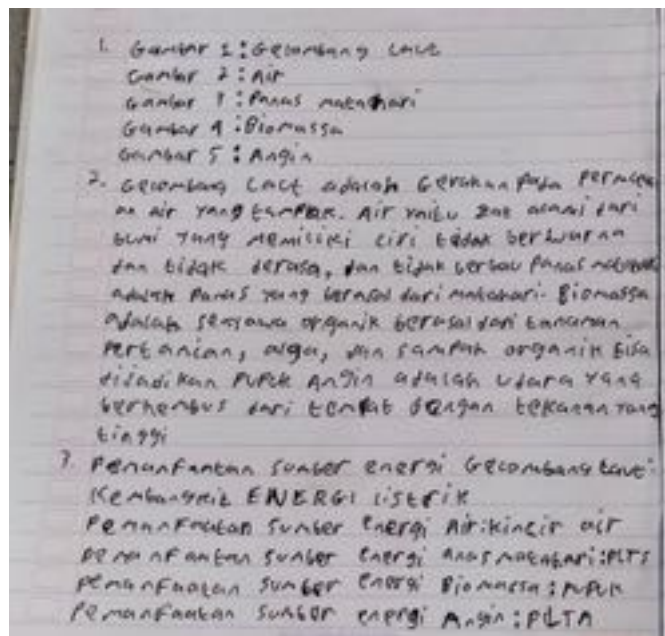 1. Gambar 1 : Gelombang laut
Gambar 2 : Air
Gambar 3 : Panas matahari
Gambar 4 : Biomassa
Gambar 5 : Angin
2. Gelombang laut adalah Gerakan Pada Permuka
an air yang tampak. Air yaitu zat alami dari
bumi yang memiliki ciri tidak berwarna
dan tidak berasa, dan tidak berbau Panas
adalah Panas yang berasal dari matahari. Biomassa
adalah senyawa organik berasal dari tanaman
Pertanian, alga, dan sampah organik bisa
dijadikan Pupuk Angin adalah udara yang
berhembus dari tempat dengan tekanan yang
tinggi
3. Pemanfaatan sumber energi Gelombang laut:
Kembangkit ENERGI listrik
Pemanfaatan sumber Energi Air:kincir air
Pemanfaatan sumber Energi Anas matahari:PLTS
Pemanfaatan sumber Energi Biomassa : Pupuk
Pemanfaatan sumber energi Angin : PLTA